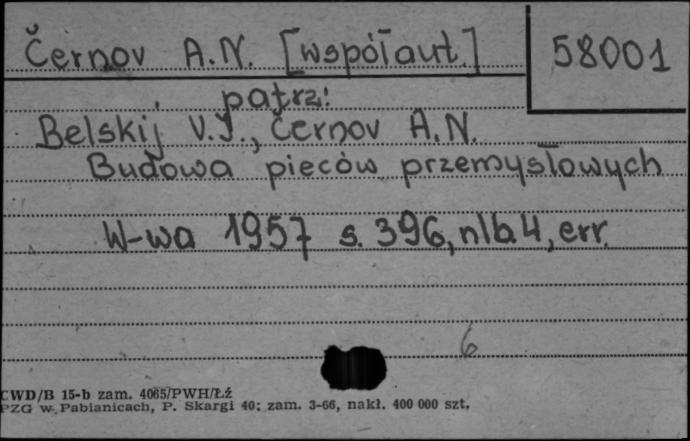 Černov A.N. [współaut.]
58001
patrz:
Belskij V.J., Černov A.N.
Budowa pieców przemysłowych
W-wa 1957 s. 396, nlb. 4, err.
6
CWD/B 15-b zam. 4065/PWH/Łź
PZG w Pabianicach, P. Skargi 40; zam. 3-66, nakł. 400 000 szt.